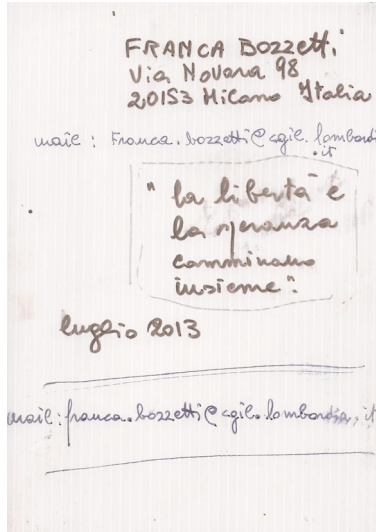 FRANCA BOZZETTI
Via Novara 98
20153 Milano Italia
mail : Franca.bozzetti@cgil.lombardi
.it
"la libertà è
la speranza
camminano
insieme".
luglio 2013
mail: franca.bozzetti@cgil.lombardia.it